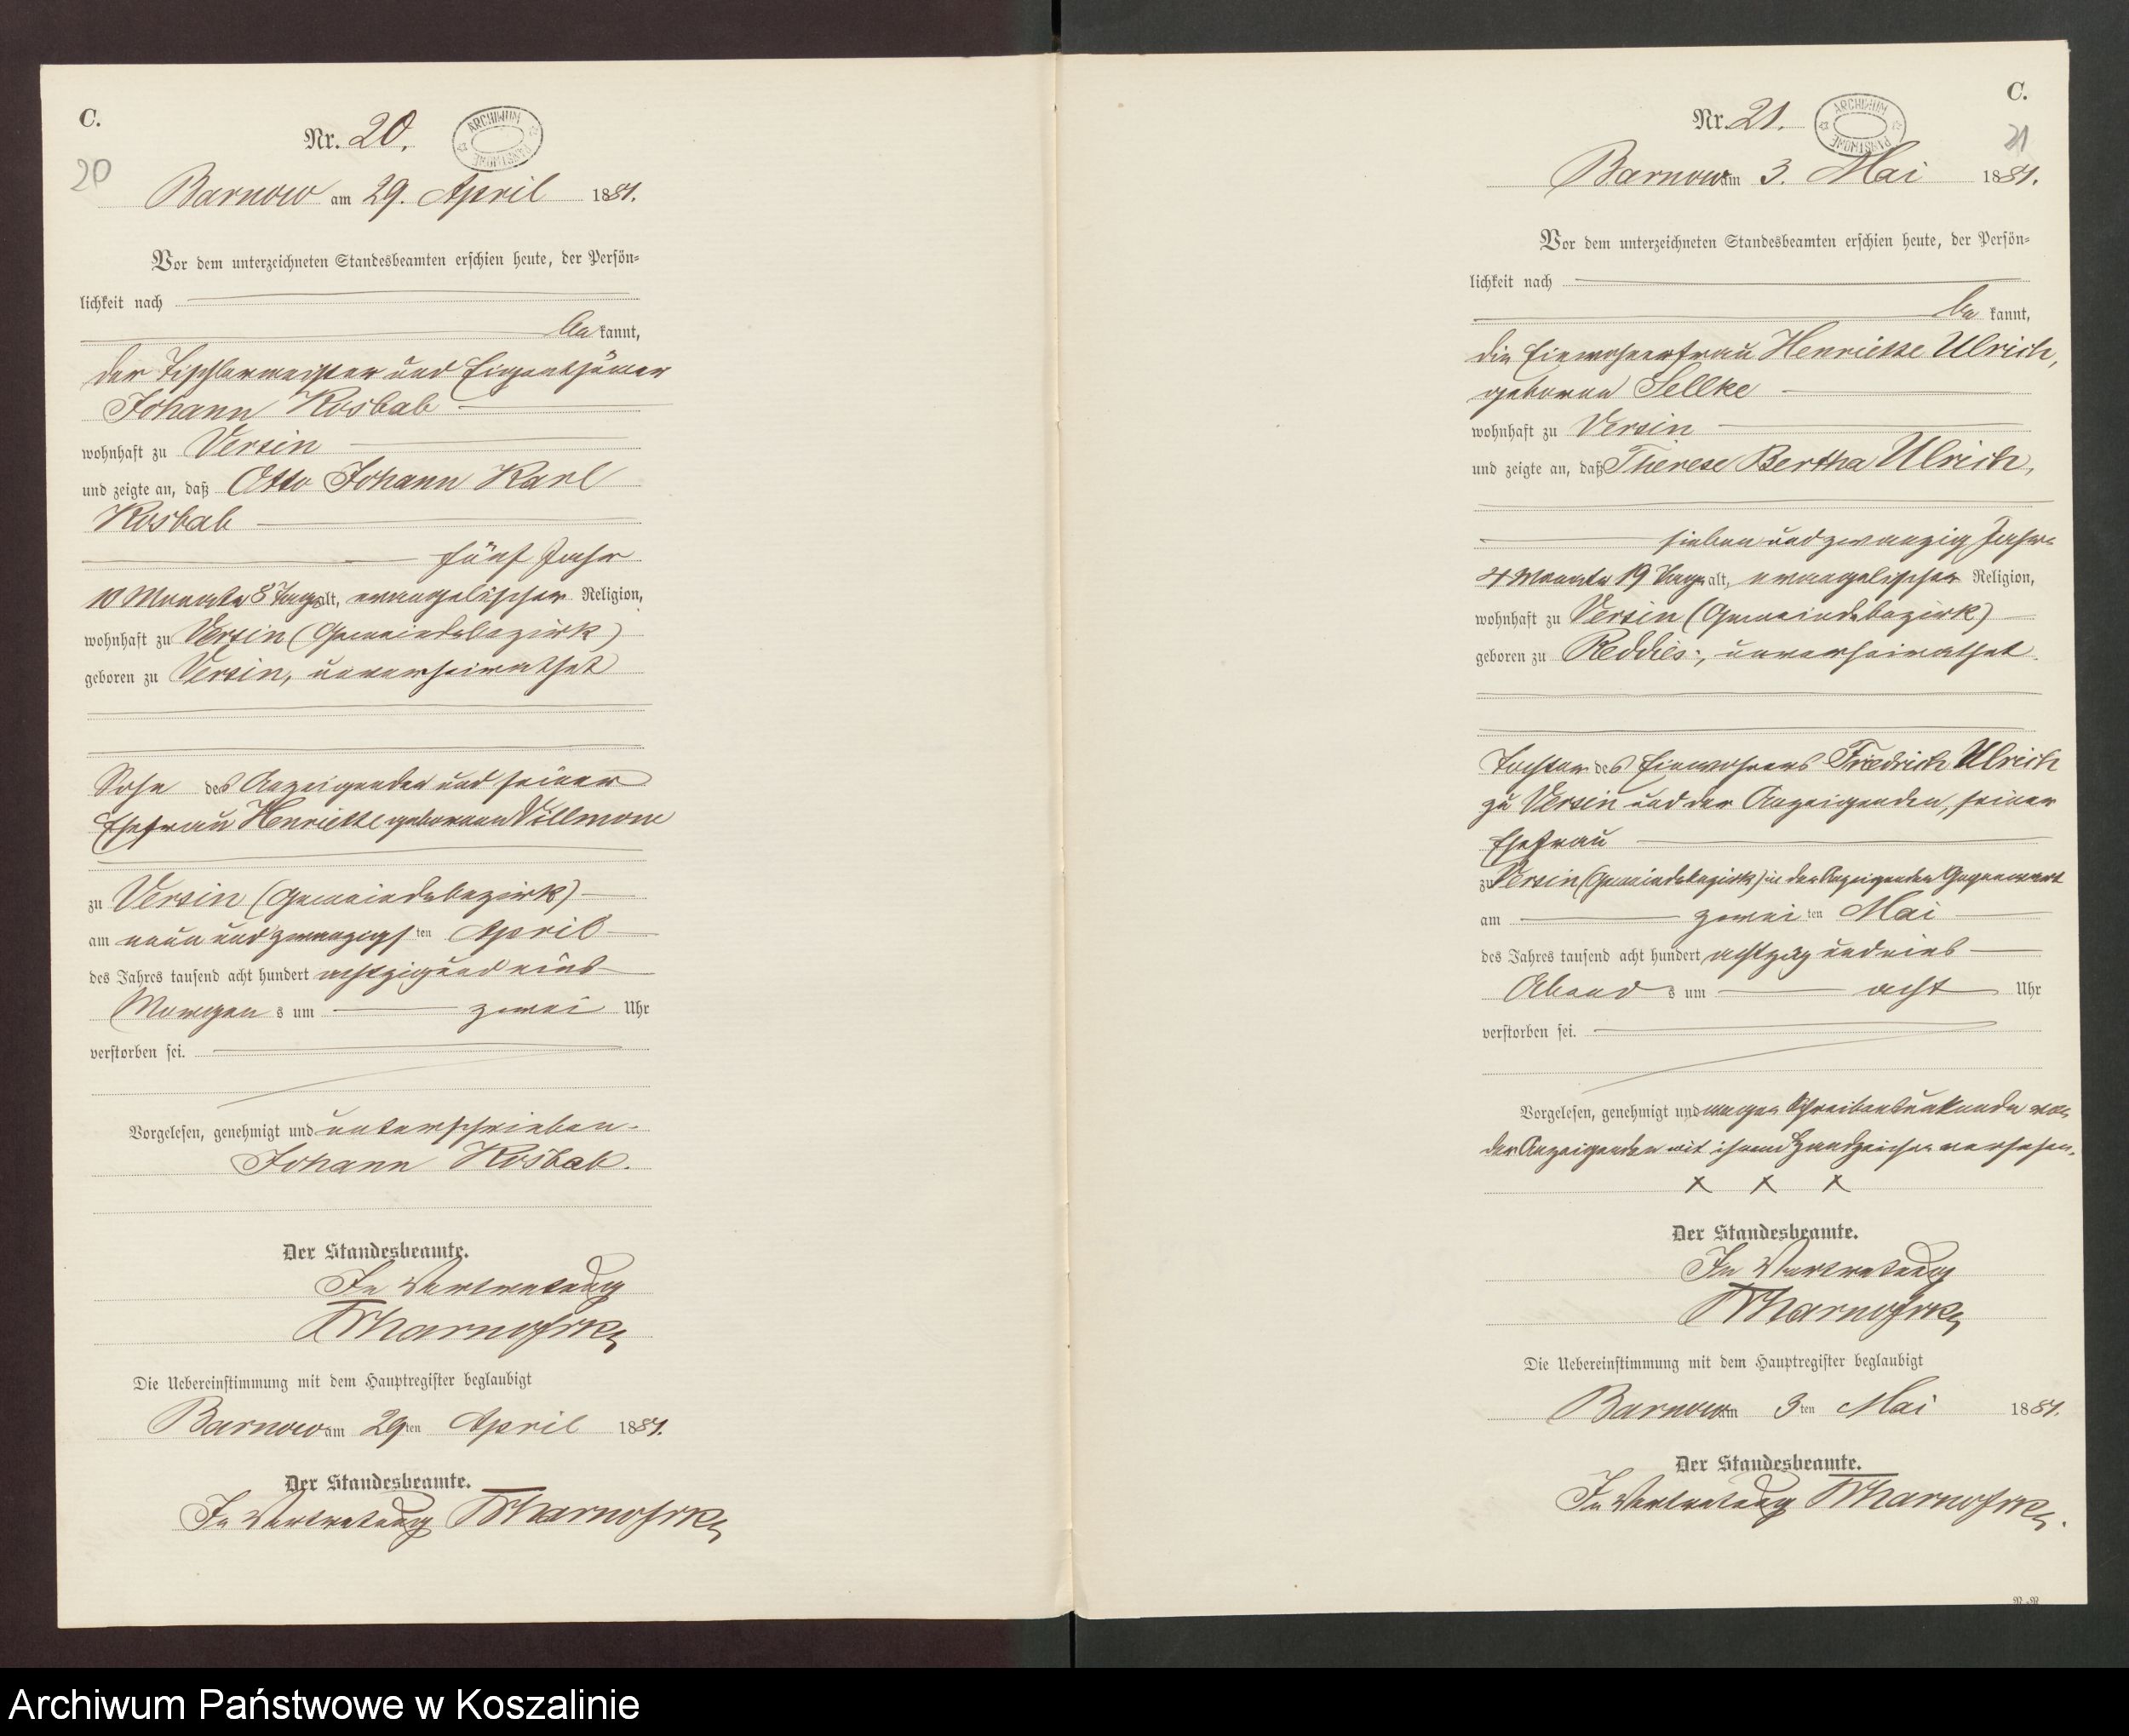 C.
20
Nr. 20.
ARCHIWUM PAŃSTWOWE
Barnow am 29. April 1881.
Vor dem unterzeichneten Standesbeamten erschien heute, der Persön-
lichkeit nach
be kannt,
der Tischlermeister und Eigenthümer
Johann Kosbab
wohnhaft zu Versin
und zeigte an, daß Otto Johann Karl
Kosbab
fünf Jahr
10 Monate 8 Tage alt, evangelischer Religion,
wohnhaft zu Versin (Gemeindebezirk)
geboren zu Versin, unverheirathet
Sohn des Anzeigenden und seiner
Ehefrau Henriette geborenen Villmow
zu Versin (Gemeindebezirk)
am neun und zwanzigs ten April
des Jahres tausend acht hundert achtzig und eins
Morgen s um zwei Uhr
verstorben sei.
Vorgelesen, genehmigt und unterschrieben.
Johann Kosbab.
Der Standesbeamte.
In Vertretung
Die Uebereinstimmung mit dem Hauptregister beglaubigt
Barnow am 29ten April 1881.
Der Standesbeamte.
In Vertretung
C.
21
Nr. 21.
ARCHIWUM PAŃSTWOWE
Barnow am 3. Mai 1881.
Vor dem unterzeichneten Standesbeamten erschien heute, der Persön-
lichkeit nach
be kannt,
die Einwohnerfrau Henriette Ulrich,
geborene Sellke
wohnhaft zu Versin
und zeigte an, daß Therese Bertha Ulrich,
sieben und zwanzig Jahre
4 Monate 19 Tage alt, evangelischer Religion,
wohnhaft zu Versin (Gemeindebezirk)
geboren zu Reddies, unverheirathet
Tochter des Einwohners Friedrich Ulrich
zu Versin und der Anzeigenden, seiner
Ehefrau
zu Versin (Gemeindebezirk) in der Anzeigenden Gegenwart
am zwei ten Mai
des Jahres tausend acht hundert achtzig und eins
Abend s um acht Uhr
verstorben sei.
Vorgelesen, genehmigt und wegen Schreibensunkunde von
der Anzeigenden mit ihrem Handzeichen versehen.
x x x
Der Standesbeamte.
In Vertretung
Die Uebereinstimmung mit dem Hauptregister beglaubigt
Barnow am 3ten Mai 1881.
Der Standesbeamte.
In Vertretung
Archiwum Państwowe w Koszalinie